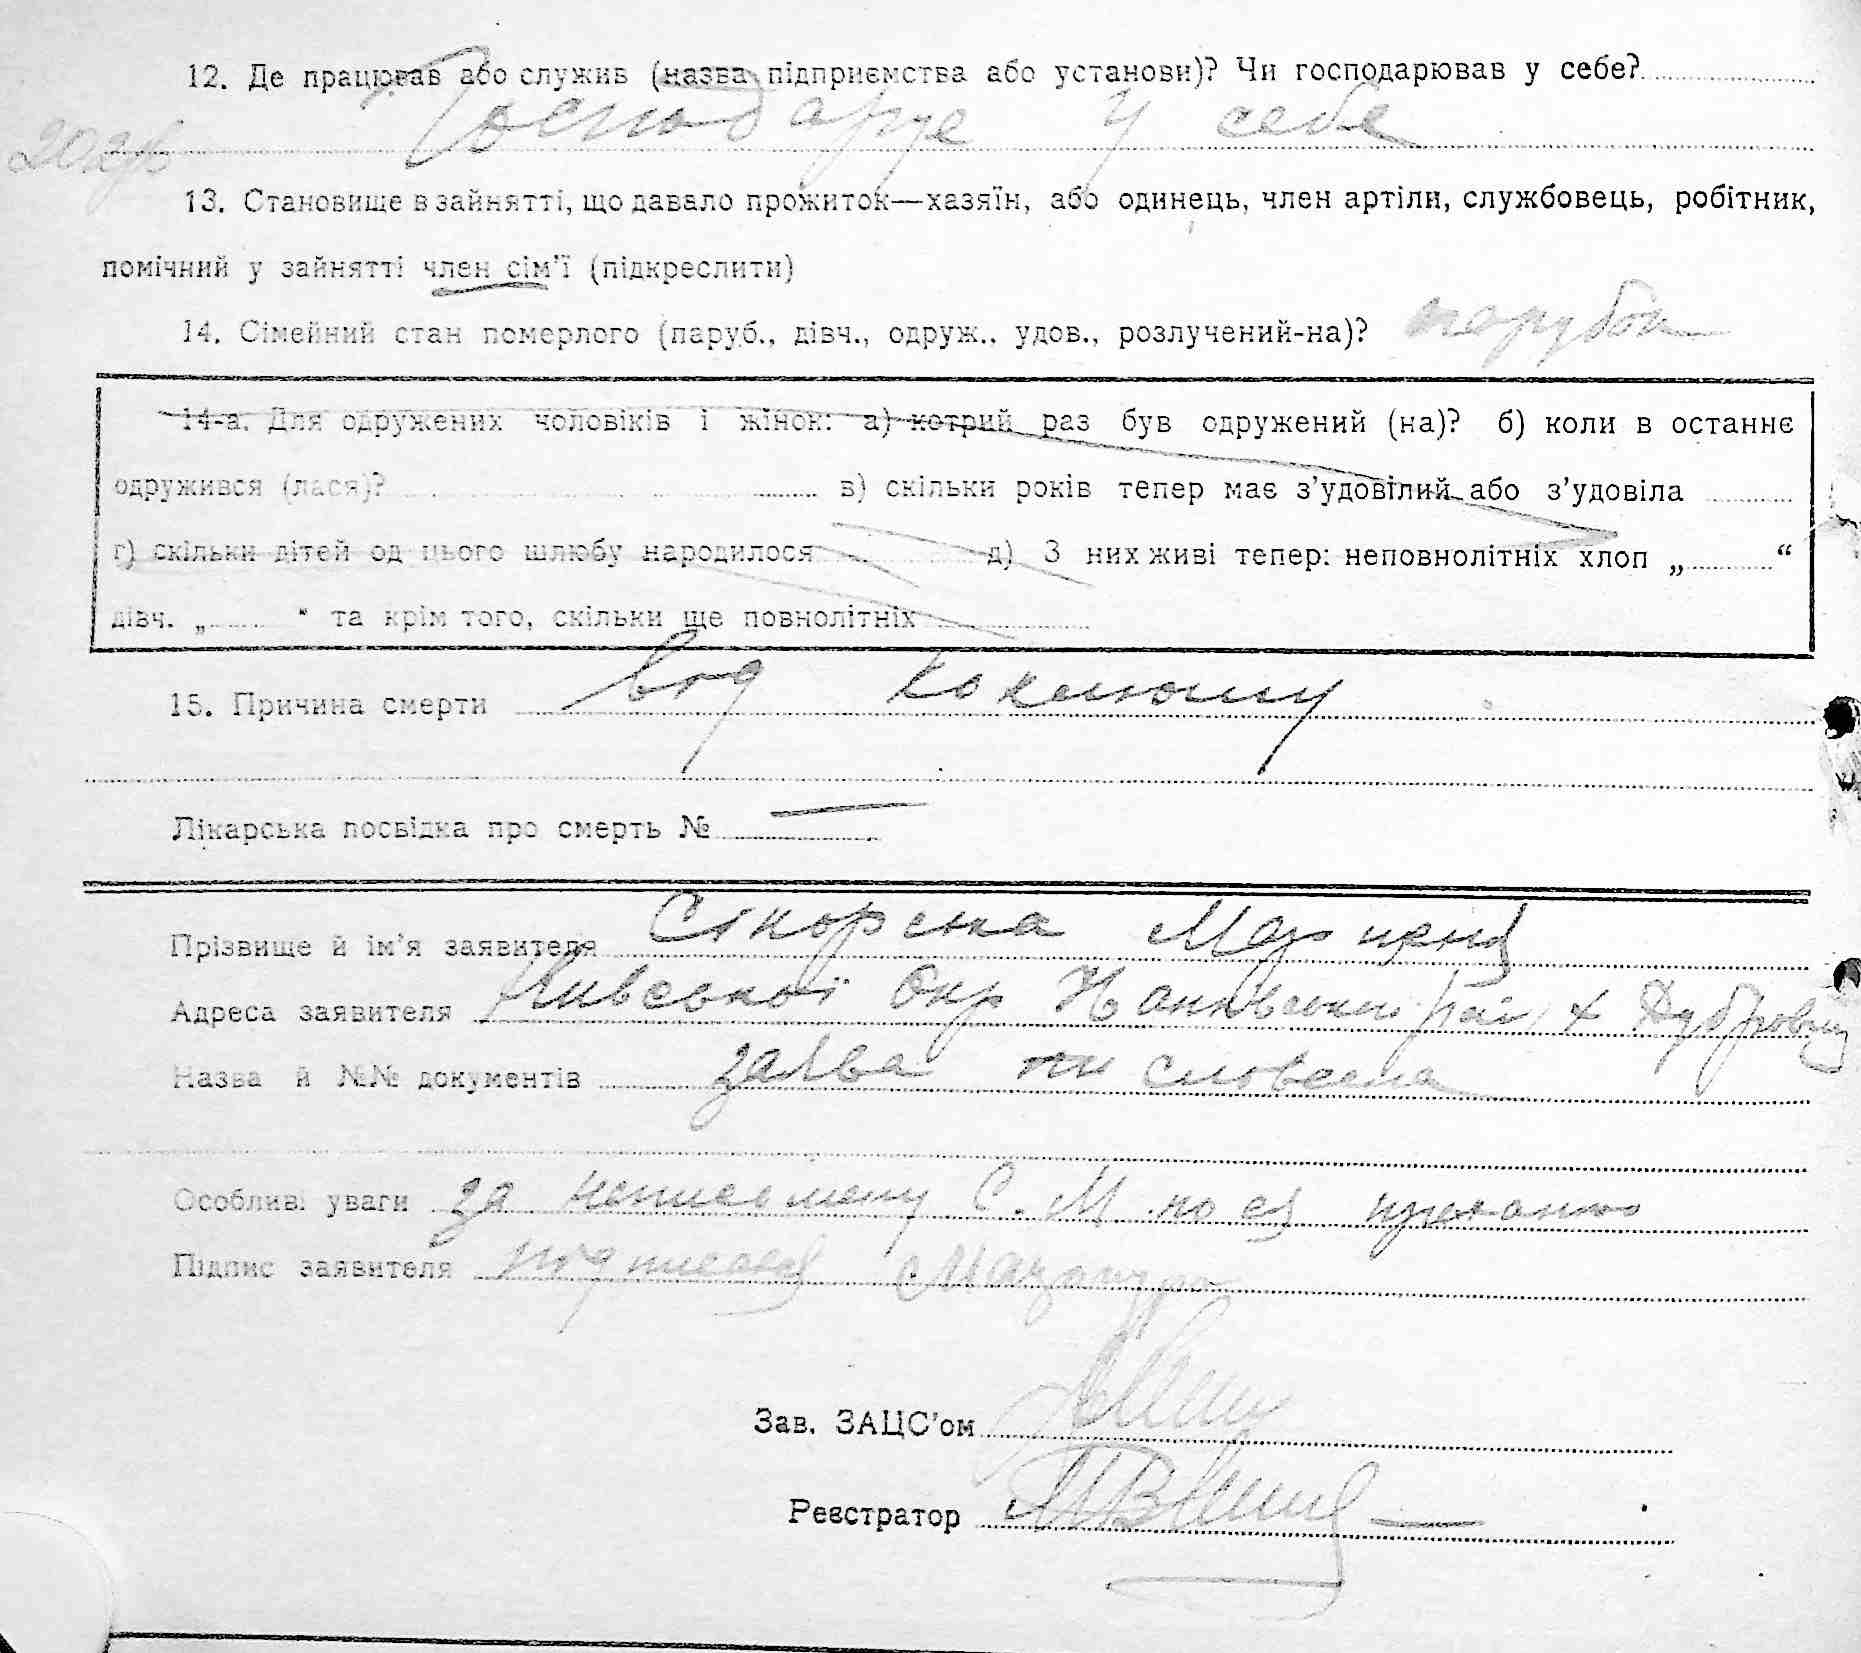 12. Де працював або служив (назва підприємства або установи)? Чи господарював у себе?
Господарує у себе
13. Становище в зайнятті, що давало прожиток—хазяїн, або одинець, член артіли, службовець, робітник,
помічний у зайнятті член сім'ї (підкреслити)
14. Сімейний стан померлого (паруб., дівч., одруж., удов., розлучений-на)? парубок
14-а. Для одружених чоловіків і жінок: а) котрий раз був одружений (на)? б) коли в останнє
одружився (лася)? в) скільки років тепер має з'удовілий або з'удовіла
г) скільки дітей од цього шлюбу народилося д) З них живі тепер: неповнолітніх хлоп „ “
дівч. „ “ та крім того, скільки ще повнолітніх
15. Причина смерти вод коклюшу
Лікарська посвідка про смерть № —
Прізвище й ім'я заявителя Сікорська Марцеля
Адреса заявителя Київської Окр х Дубровиц
Назва й №№ документів заява словесна
Особливі уваги за неписьмену С. М по ея
Підпис заявителя
Зав. ЗАЦС'ом
Реєстратор